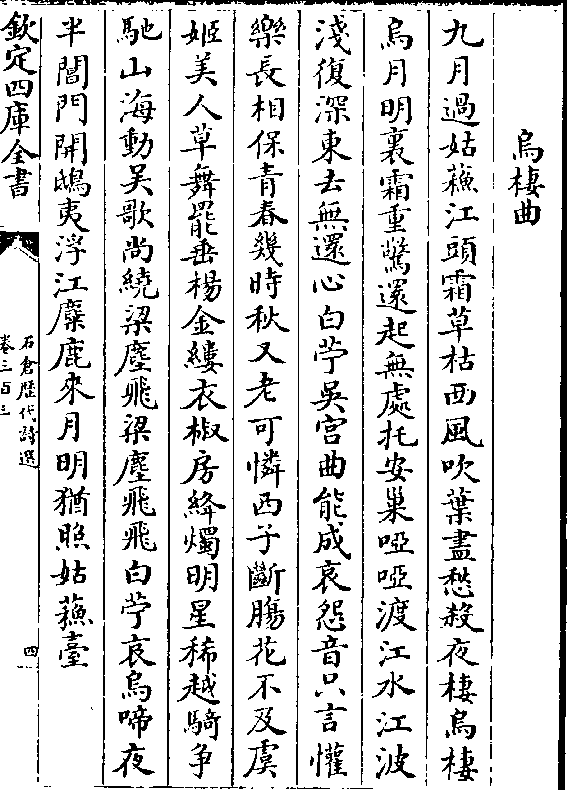 烏棲曲
九月過姑蘇江頭霜草枯西風吹葉盡愁殺夜棲烏棲
烏月明裏霜重驚還起無處托安巢啞啞渡江水江波
淺復深東去無還心白苧吳宫曲能成哀怨音只言懽
樂長相保青春幾時秋又老可憐西子斷腸花不及虞
姬美人草舞罷垂楊金縷衣椒房絳燭明星稀越騎争
馳山海動吴歌尚繞梁塵飛梁塵飛飛白苧哀烏啼夜
半閶門開鴟夷浮江麋鹿來月明猶照姑蘇臺
欽定四庫全書
石倉歴代詩選
卷三百三
四